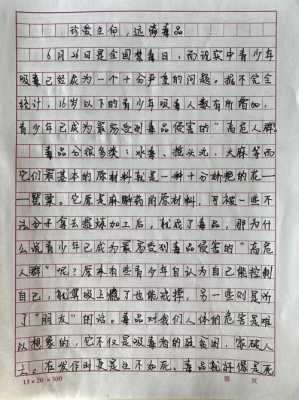 珍爱生命，远离毒品
6月26日是全国禁毒日，而现实中青少年
吸毒已经成为一个十分严重的问题。据不完全
统计，16岁以下的青少年吸毒人数有所增加，
青少年已成为最易受到毒品侵害的“高危人群
毒品分很多类：冰毒、摇头丸、大麻等而
它们最基本的原材料就是一种十分娇艳的花—
—罂粟。它原是麻醉药的原材料，可被一些不
法分子拿去提炼加工后，就成了毒品，那为什
么说青少年已成为最易受到毒品侵害的“高危
人群”呢？原来有些青少年自认为自己能控制
自己，就算吸上瘾了也能戒掉，另一些则是听
了“朋友”的话。毒品对我们人体的危害是难
以想象的，它不仅是吸毒者的致贫困，家破人
亡。在发作时更是生不如死。毒品就好像是死
15×20=300
第 页